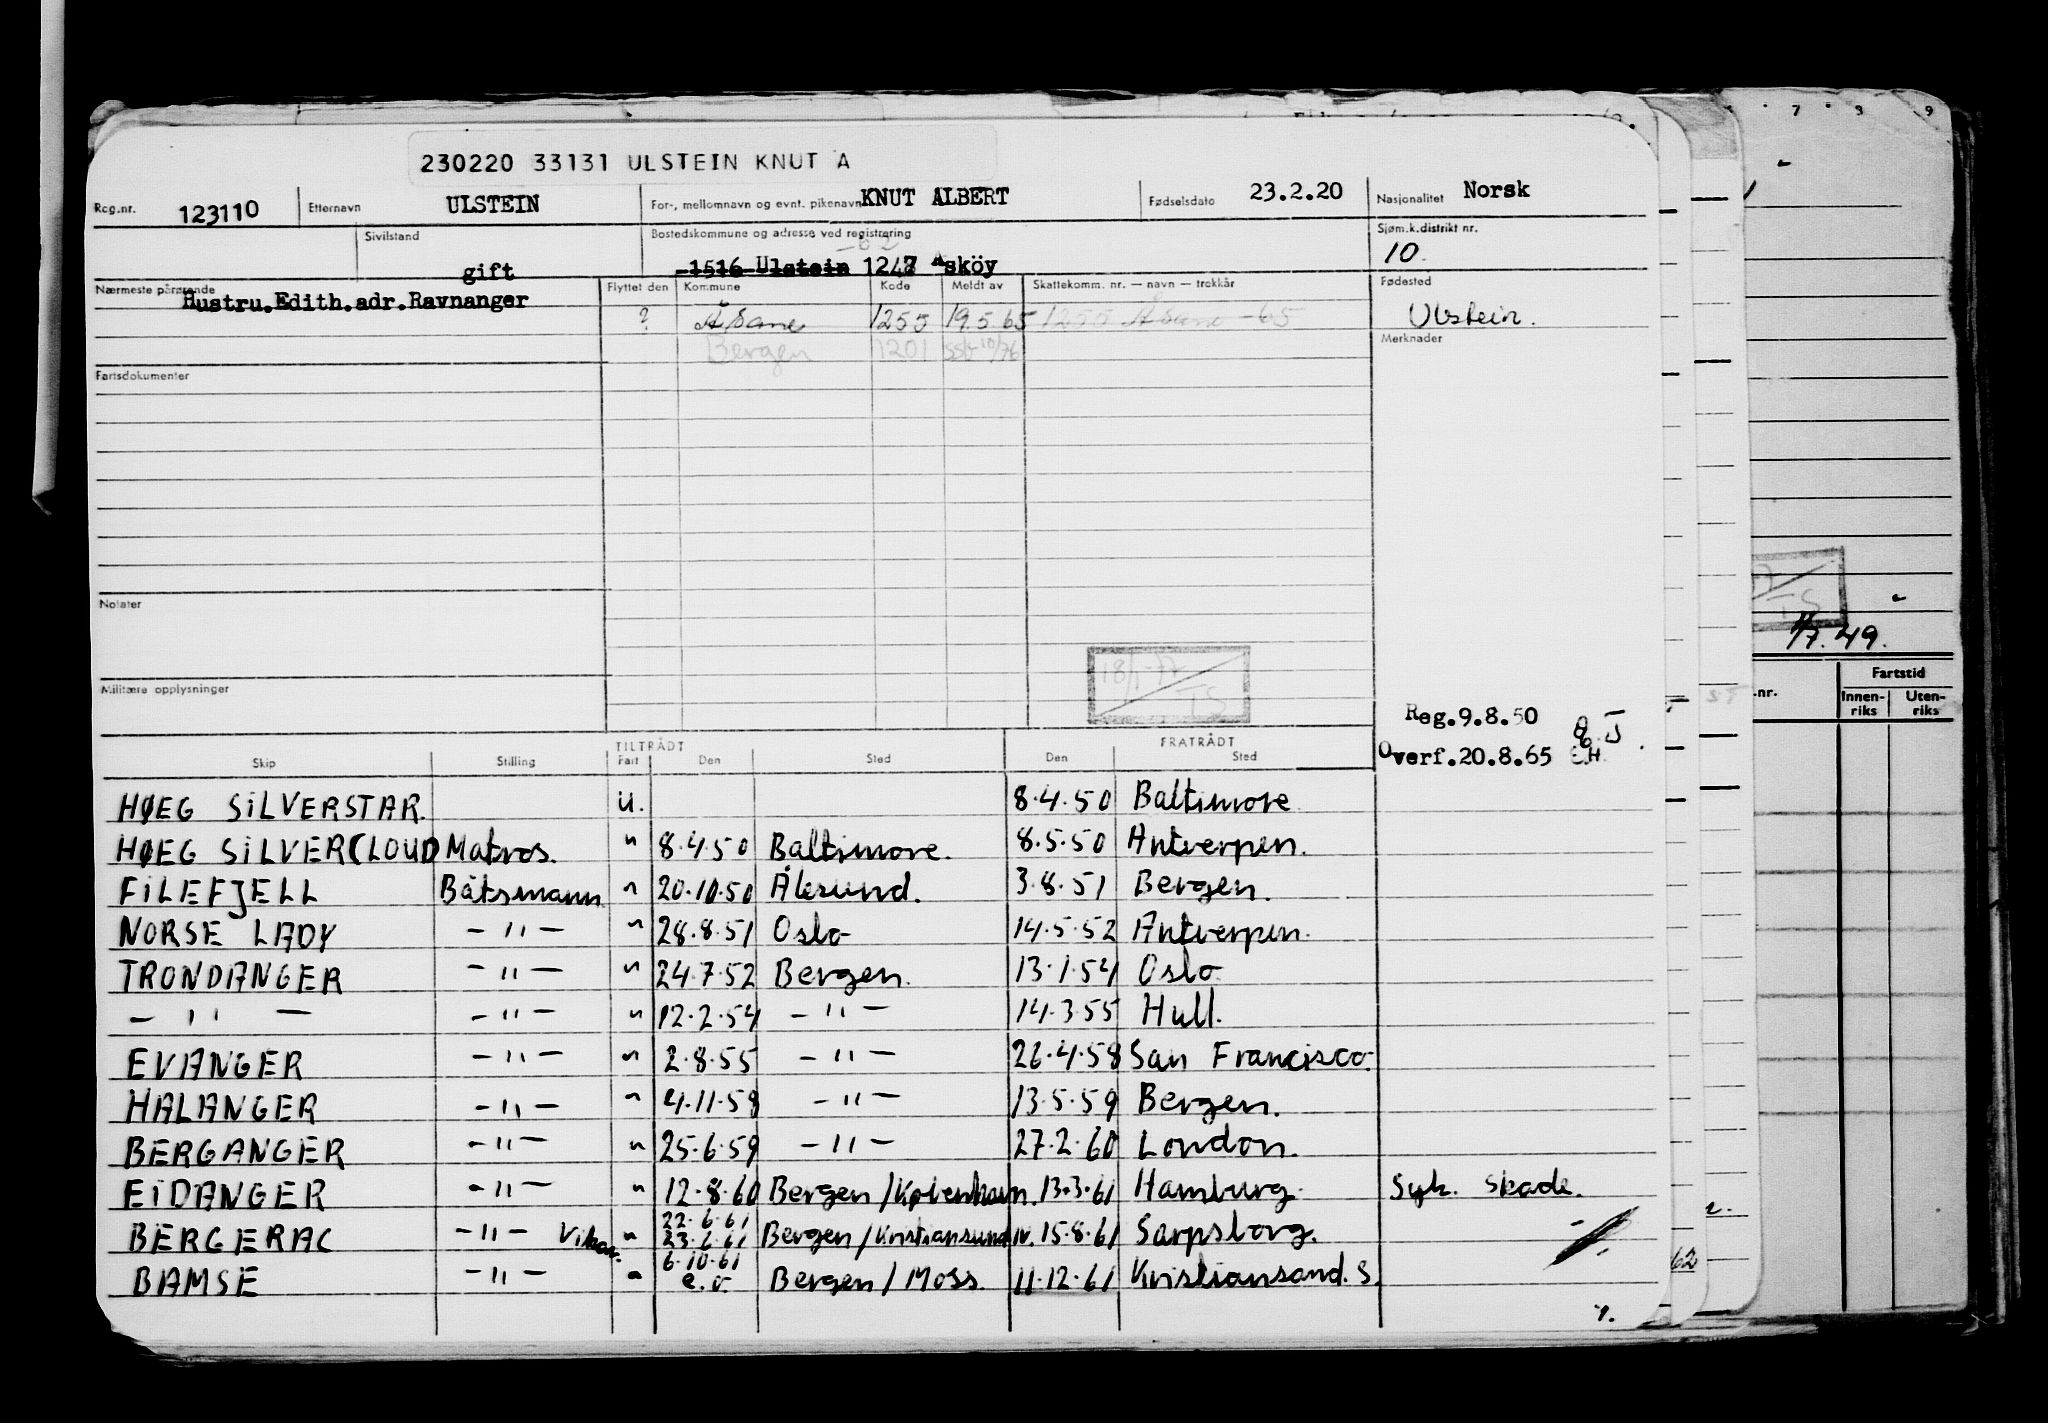 230220 33131 ULSTEIN KNUT A
Reg.nr. 123110 Etternavn ULSTEIN For-, mellomnavn og evnt. pikenavn KNUT ALBERT Fødselsdato 23.2.20 Nasjonalitet Norsk
Sivilstand gift Bostedskommune og adresse ved registrering 1516 Ulstein 1247 Asköy Sjøm.k.distrikt nr. 10.
Nærmeste pårørende Hustru.Edith.adr.Ravnanger Flyttet den Kommune Kode Meldt av Skattekomm. nr. — navn — trekkår Fødested
? Åsane 1255 19.5.65 1255 Åsane -65 Ulstein.
Bergen 1201 SSB 10/76 Merknader
Fartsdokumenter
Notater
7/7.49.
18/1-77 TS
Militære opplysninger
Reg.9.8.50
Overf.20.8.65 E.H.
.nr. Fartstid
Innen-riks Uten-riks
TILTRÅDT FRATRÅDT
Skip Stilling Fart Den Sted Den Sted
HØEG SILVERSTAR. U. 8.4.50 Baltimore
HØEG SILVERCLOUD Matros. " 8.4.50 Baltimore. 8.5.50 Antverpen.
FILEFJELL Båtsmann " 20.10.50 Ålesund. 3.8.51 Bergen.
NORSE LADY - " - " 28.8.51 Oslo 14.5.52 Antverpen.
TRONDANGER - " - " 24.7.52 Bergen. 13.1.54 Oslo
- " - - " - " 12.2.54 - " - 14.3.55 Hull.
EVANGER - " - " 2.8.55 - " - 26.4.58 San Francisco.
HALANGER - " - " 4.11.58 - " - 13.5.59 Bergen.
BERGANGER - " - " 25.6.59 - " - 27.2.60 London.
EIDANGER - " - " 12.8.60 Bergen/København. 13.3.61 Hamburg. Syk. skade.
BERGERAC - " - Vikar. " 22.6.61 23.6.61 Bergen/Kristiansund N. 15.8.61 Sarpsborg.
BAMSE - " - " 6.10.61 e.o. Bergen/Moss. 11.12.61 Kristiansand. S.
62